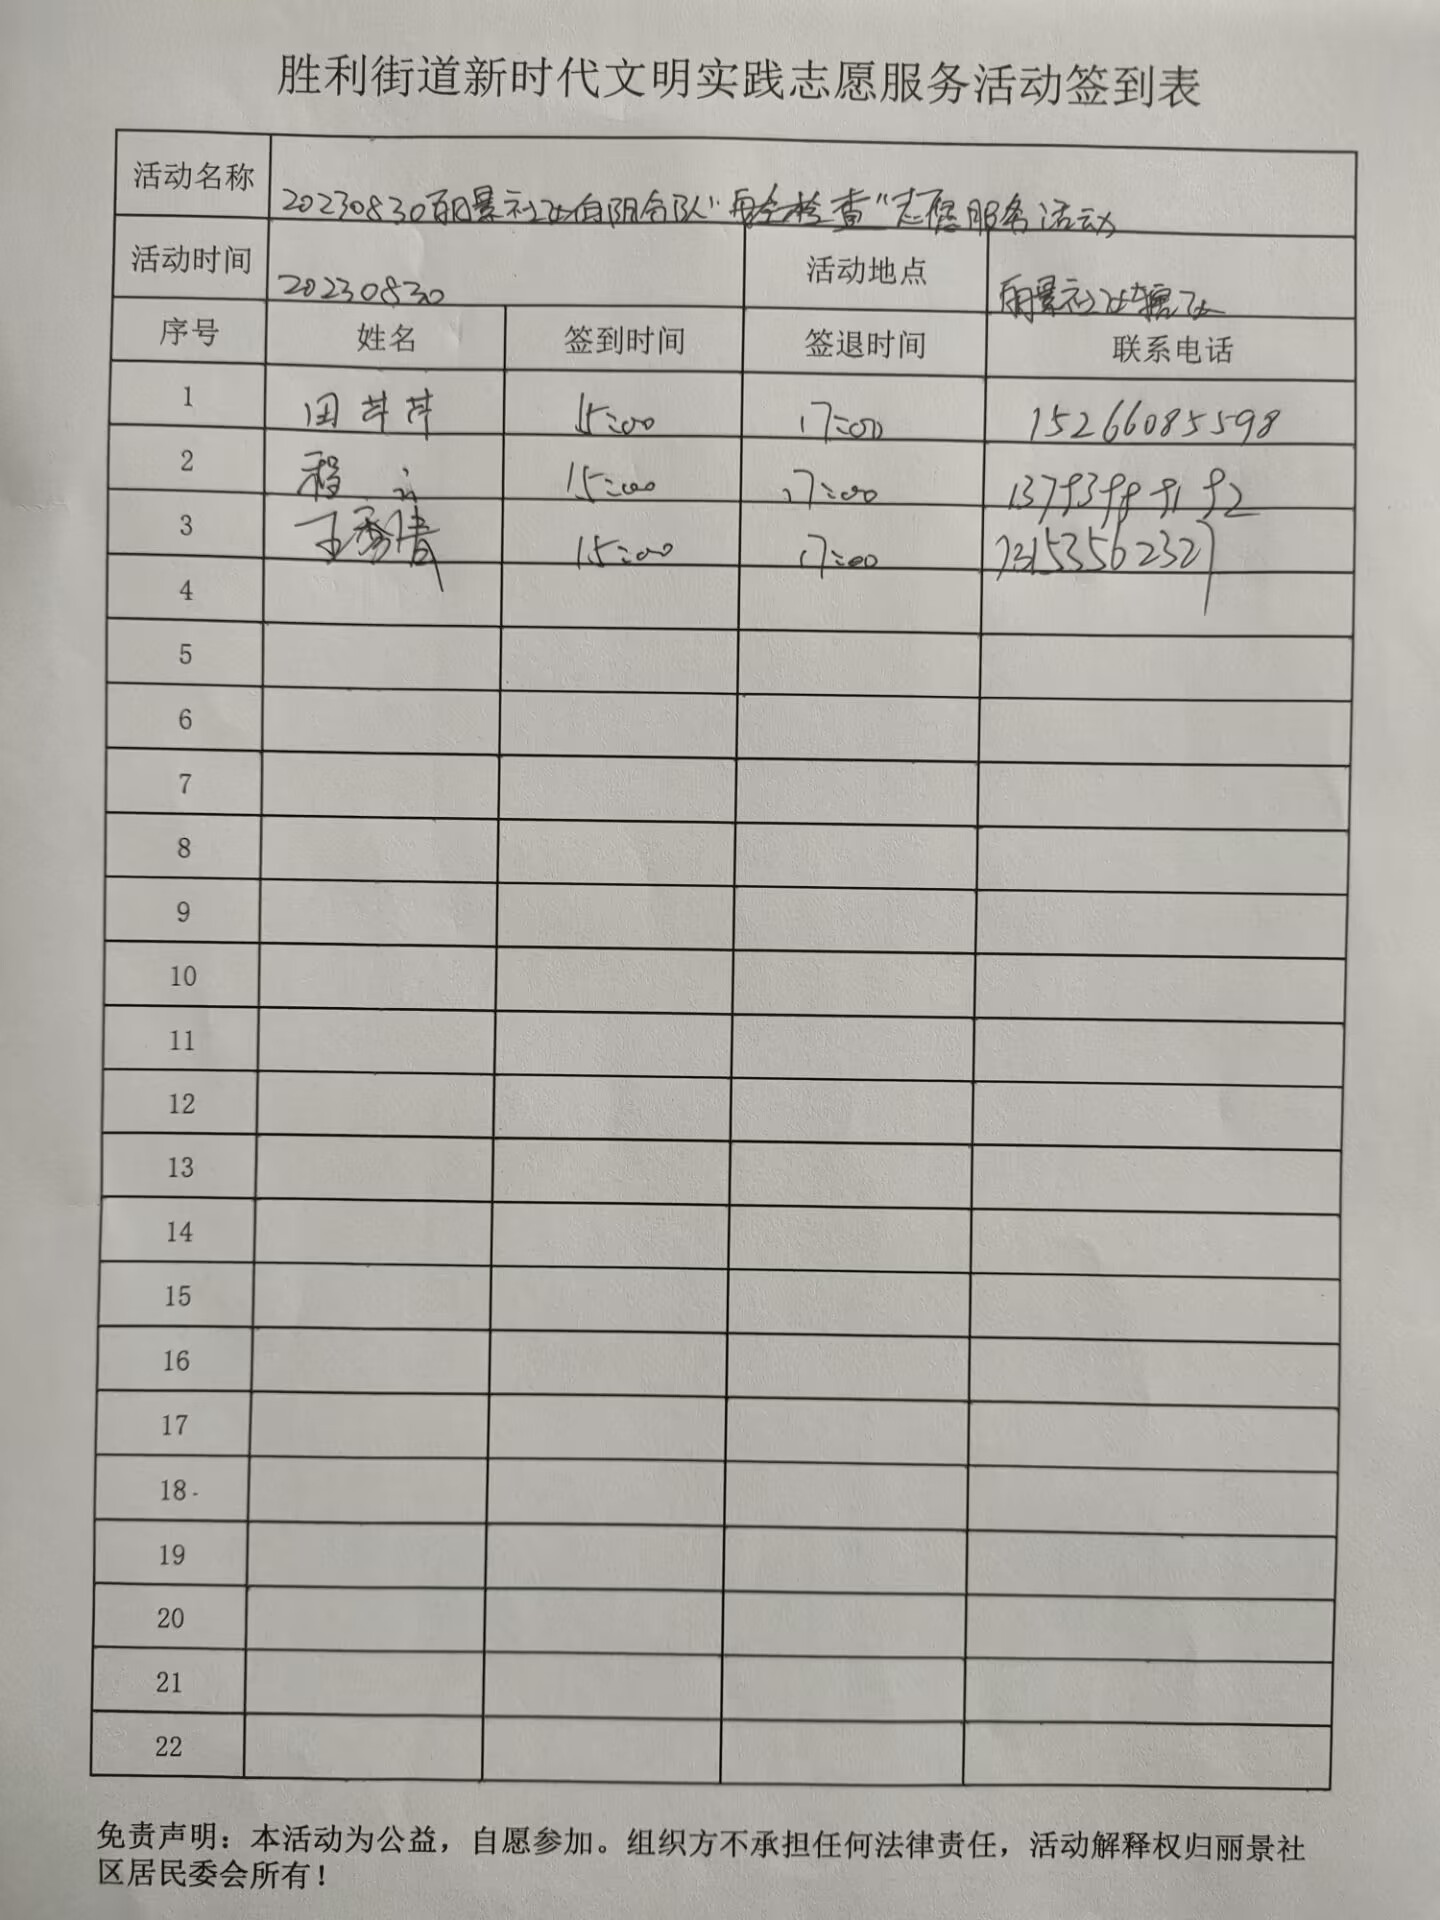 胜利街道新时代文明实践志愿服务活动签到表
活动名称 20230830丽景社区 志愿服务活动
活动时间 20230830 活动地点 丽景社区辖区
序号 姓名 签到时间 签退时间 联系电话
1 田芹芹 15:00 17:00 15266085598
2 程 15:00 17:00
3 王秀清 15:00 17:00
4
5
6
7
8
9
10
11
12
13
14
15
16
17
18
19
20
21
22
免责声明：本活动为公益，自愿参加。组织方不承担任何法律责任，活动解释权归丽景社
区居民委会所有！